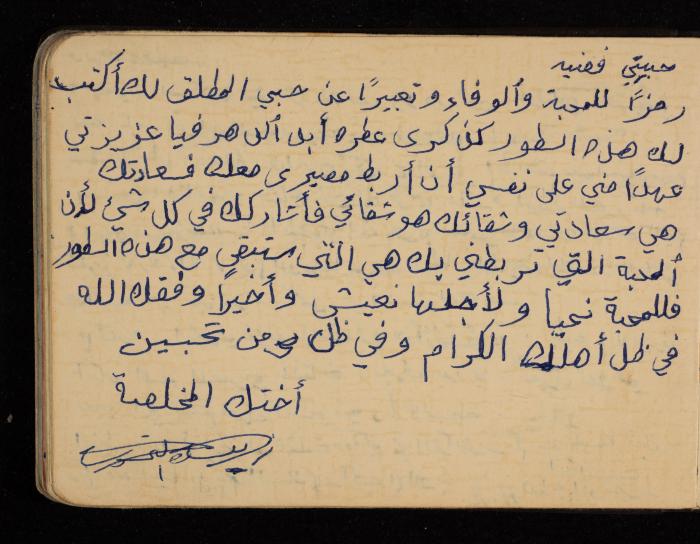 حبيبتي فضيه
رمزًا للمحبة والوفاء وتعبيرًا عن حبي المطلق لك أكتب
لك هذه السطور كذكرى عطره أبد الدهر فيا عزيزتي
عهدًا مني على نفسي أن أربط مصيرى معك فسعادتك
هي سعادتي وشقائك هو شقائي فأشاركك في كل شئ لأن
المحبة التي تربطني بك هي التي ستبقى مع هذه السطور
فللمحبة نحيا ولأجلها نعيش وأخيرًا وفقك الله
في ظل أهلك الكرام وفي ظل من تحبين
أختك المخلصة